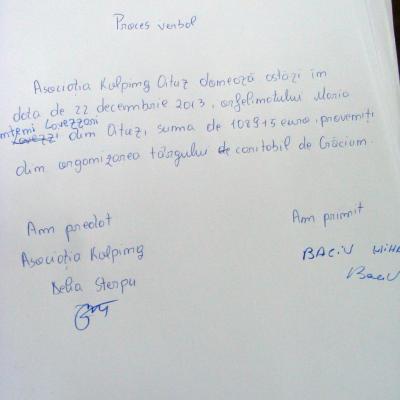 Proces verbal
Asociația Kolping Oituz donează astăzi în
data de 22 decembrie 2013, orfelinatului Maria
Lovezzani
din Oituz, suma de euro, proveniți
din organizarea târgului de caritabil de Crăciun.
Am predat
Am primit
Asociația Kolping
BACIU MIHA
Delia Sterpu
Baciu